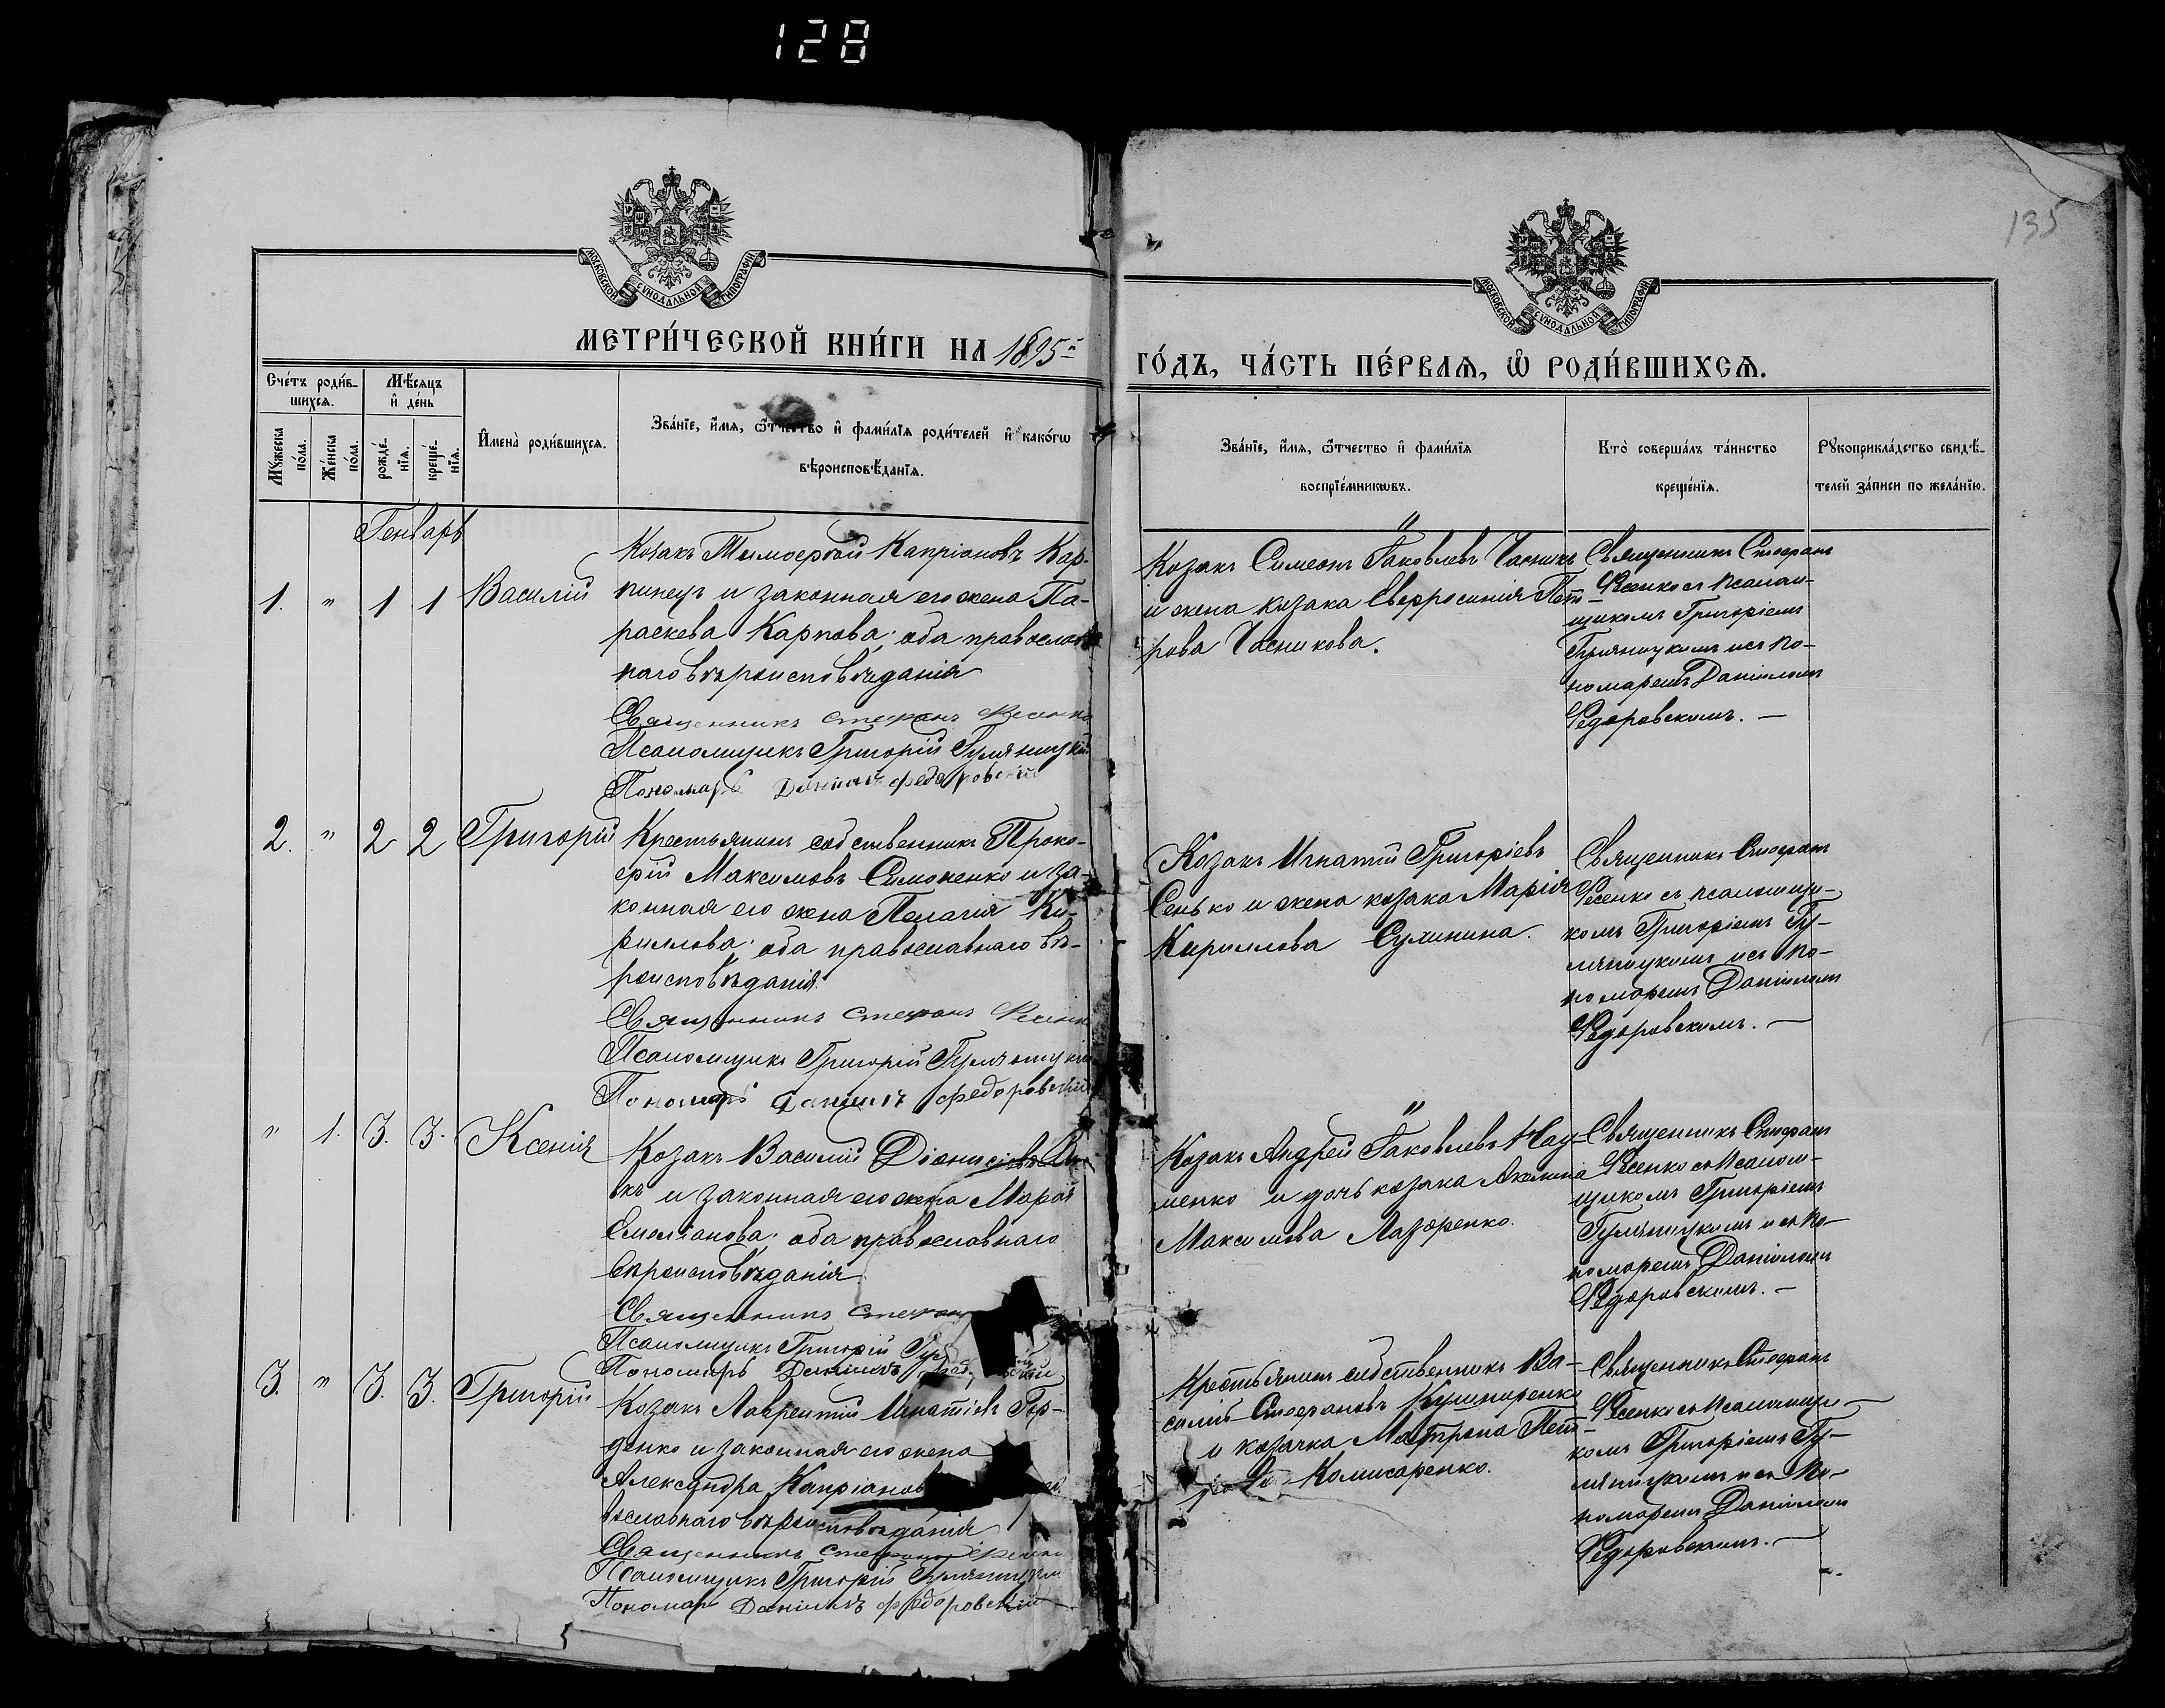 128
135
МОСКОВСКОЙ СѴНОДАЛЬНОЙ ТИПОГРАФІИ
МОСКОВСКОЙ СѴНОДАЛЬНОЙ ТИПОГРАФІИ
МЕТРИ́ЧЕСКОЙ КНИ́ГИ НА 1895й
ГО́ДЪ, ЧА́СТЬ ПЕ́РВАѦ, Ѡ҆ РОДИ́ВШИХСѦ.
Сче́тъ роди́в-
шихсѧ.
Мѣ́сѧцъ
и҆ де́нь
Мꙋ́жеска
по́ла.
Же́нска
по́ла.
рожде́-
нїѧ.
креще́-
нїѧ.
И҆мена̀ роди́вшихсѧ.
Зва́нїе, и҆́мѧ, ѻ҆́тчество и҆ фами́лїѧ роди́телей и҆ како́гѡ
вѣроисповѣ́данїѧ.
Зва́нїе, и҆́мѧ, ѻ҆́тчество и҆ фами́лїѧ
воспрїе́мникѡвъ.
Кто̀ соверша́лъ та́инство
креще́нїѧ.
Рꙋкоприкла́дство свидѣ́-
телей за́писи по жела́нїю.
Генварь
1. " 1 1 Василій
Козакъ Тимофей Капріановъ Кар-
пинецъ и законная его жена Па-
раскева Карпова; оба православ
наго вѣроисповѣданія
Священникъ Стефанъ Фесенко
Псаломщикъ Григорій Гуляницкій
Пономарь Даніилъ Федоровскій
Козакъ Симеонъ Іаковлевъ Часникъ
и жена козака Евфросинія Пет-
рова Часникова.
Священникъ Стефанъ
Фесенко съ псалом-
щикомъ Григоріемъ
Гуляницкимъ и съ по-
номаремъ Даніиломъ
Федоровскимъ. —
2. " 2 2 Григорій
Крестьянинъ собственникъ Проко-
фій Максимовъ Симоненко и за-
конная его жена Пелагія Ки-
риллова; оба православнаго вѣ-
роисповѣданія.
Священникъ Стефанъ Фесенко
Псаломщикъ Григорій Гуляницкій
Пономарь Даніилъ Федоровскій
Козакъ Игнатій Григоріевъ
Сенько и жена козака Марія
Кириллова Сулинина.
Священникъ Стефанъ
Фесенко съ псаломщи-
комъ Григоріемъ Гу-
ляницкимъ и съ по-
номаремъ Даніиломъ
Федоровскимъ. —
" 1. 3. 3. Ксенія
Козакъ Василій Діонисіевъ
и законная его жена Марія
Емеліанова; оба православнаго
вѣроисповѣданія
Священникъ Стефан
Псаломщикъ Григорій Гул
Пономарь Даніилъ
Козакъ Андрей Іаковлевъ Нау-
менко и дочь козака Акилина
Максимова Лазоренко.
Священникъ Стефанъ
Фесенко съ псалом-
щикомъ Григоріемъ
Гуляницкимъ и съ по-
номаремъ Даніиломъ
Федоровскимъ. —
3. " 3. 3. Григорій
Козакъ Лаврентій Игнатіевъ Гор-
денко и законная его жена
Александра Капріанов
вославнаго вѣроисповѣданія
Священникъ Стефанъ Фесенко
Псаломщикъ Григорій Гуляницкій
Пономарь Даніилъ Федоровскій
Крестьянинъ собственникъ Ва-
силій Стефановъ Кушниренко
и козачка Матрона Пет-
рова Комисаренко.
Священникъ Стефанъ
Фесенко съ псаломщи-
комъ Григоріемъ Гу-
ляницкимъ и съ по-
номаремъ Даніиломъ
Федоровскимъ. —